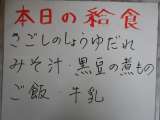 本日の給食
さごしのしょうゆだれ
みそ汁・黒豆の煮もの
ご飯・牛乳